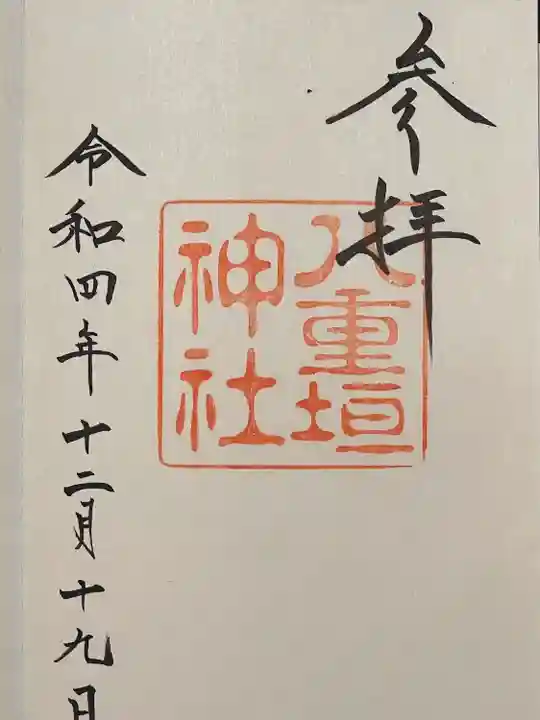 参拝
八重垣
神社
令和四年十二月十九日